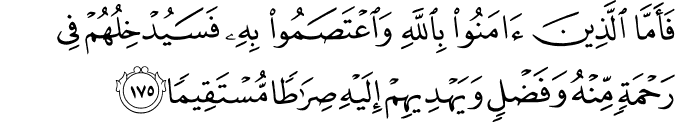 فَأَمَّا ٱلَّذِينَ ءَامَنُوا۟ بِٱللَّهِ وَٱعْتَصَمُوا۟ بِهِۦ فَسَيُدْخِلُهُمْ فِى
رَحْمَةٍ مِّنْهُ وَفَضْلٍ وَيَهْدِيهِمْ إِلَيْهِ صِرَٰطًا مُّسْتَقِيمًا ١٧٥